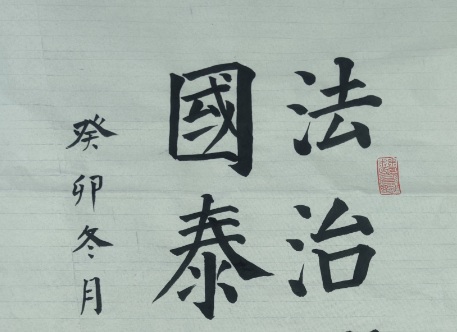 法治
國泰
癸卯冬月